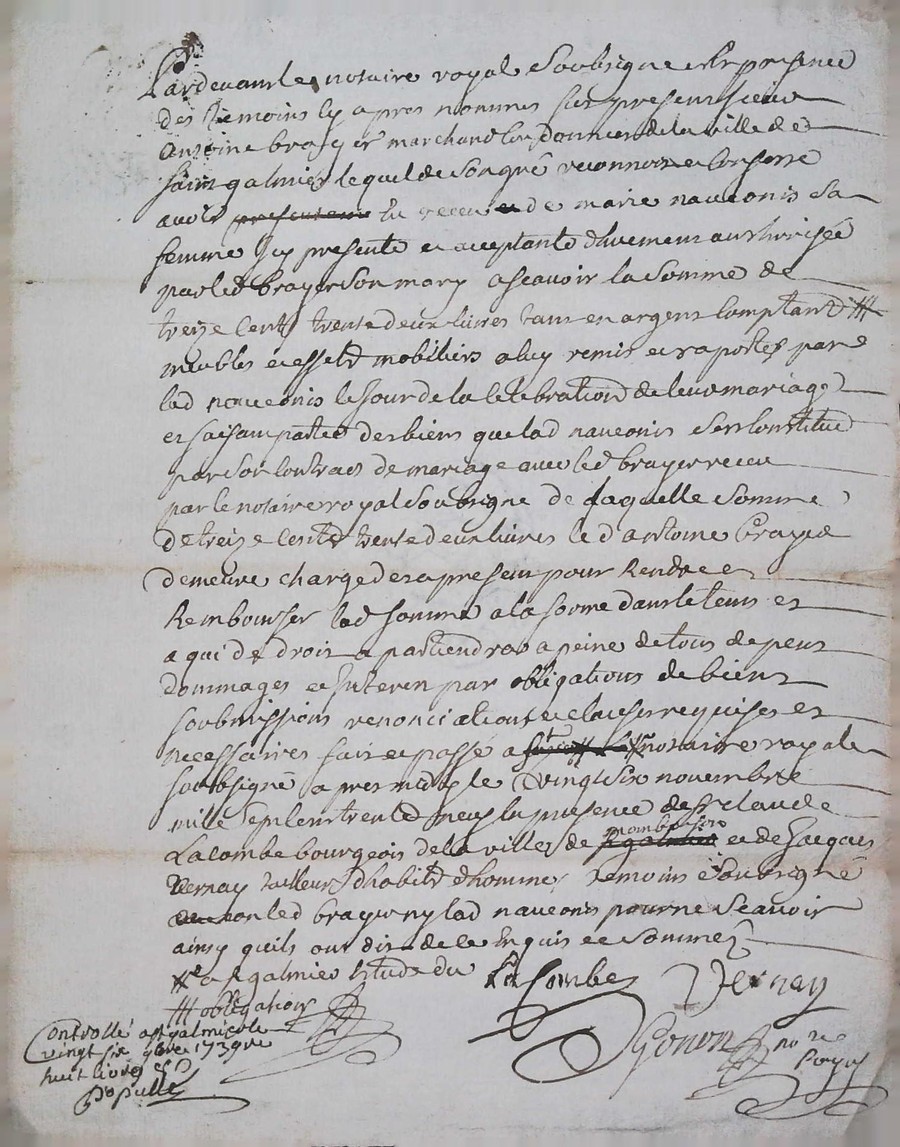 Pardevant le notaire royal soubsigne et En presence
des temoins cy apres nommes fut present sieur
Antoine brayer marchand cordonnier de la ville de
Saint galmier lequel de son gré reconnoit et confesse
avoir presentement eu receu de marie naveonis sa
femme Icy presente et acceptante dhuement authorisée
par led brayer son mary ascavoir la somme de
treize cents trente deux livres tant en argent comptant #
meubles et effets mobiliers a luy remis et raportes par
lad naveonis le jour de la celebration de leur mariage
et faisant partie des biens que lad naveonis sest constitué
par son contract de mariage avec led brayer receu
par le notaire royal soubsigne de laquelle somme
de treize cents trente deux livres led antoine brayer
demeure charge des a present pour Rendre et
Rembourser lad somme a la forme dans le tems et
a qui de droit apartiendra a peine de tous depens
dommages et Interets par obligations de biens
soubmissions renonciations et clauses requises et
necessaires fait et passé a notaire royal
soubsigné apres midy le vingt six novembre
mille sept cent trente neuf En presence de sr claude
Lacombe bourgeois de la ville de st galmier montbrison et de Jacques
Vernay tailleur dhabits dhomme temoins soubsigné
et non led brayer ny lad naveonis pour ne scavoir
ainsy quils ont dit de ce Enquis et sommes
a st galmier Etude du
# obligations
La Combe Vernay
Gonon nore
Royal
Controllé a st galmier le
vingt six 9bre 1739 reçu
huit livres